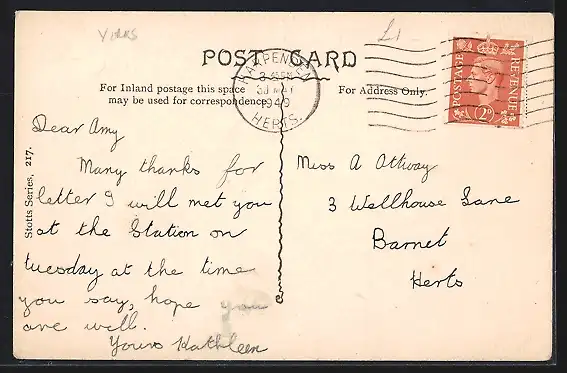 YORKS
£1
POST CARD
HARPENDEN
3 45 PM
30 MAY
1949
HERTS.
POSTAGE
REVENUE
2D
For Inland postage this space
may be used for correspondence.
For Address Only.
Stotts Series, 217.
Dear Amy
Many thanks for
letter I will met you
at the Station on
tuesday at the time
you say, hope you
are well.
Yours Kathleen
Miss A Attway
3 Wellhouse Lane
Barnet
Herts